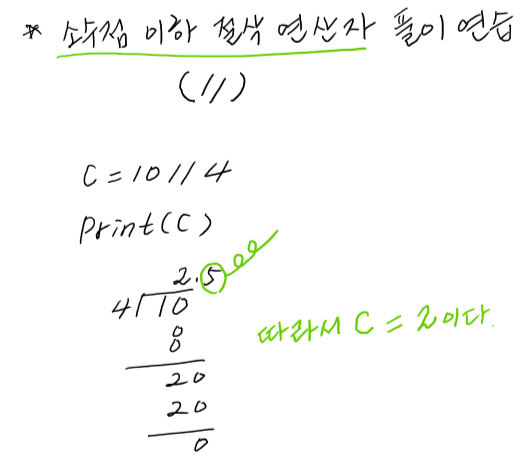 * 소숫점 이하 절삭 연산자 풀이 연습
(//)
C = 10 // 4
Print(C)
2.5
4 10
8
20
20
0
따라서 C = 2이다.